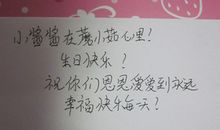 小酱酱在蘑小茹心里！
生日快乐？
祝你们恩恩爱爱到永远
幸福快乐每天？